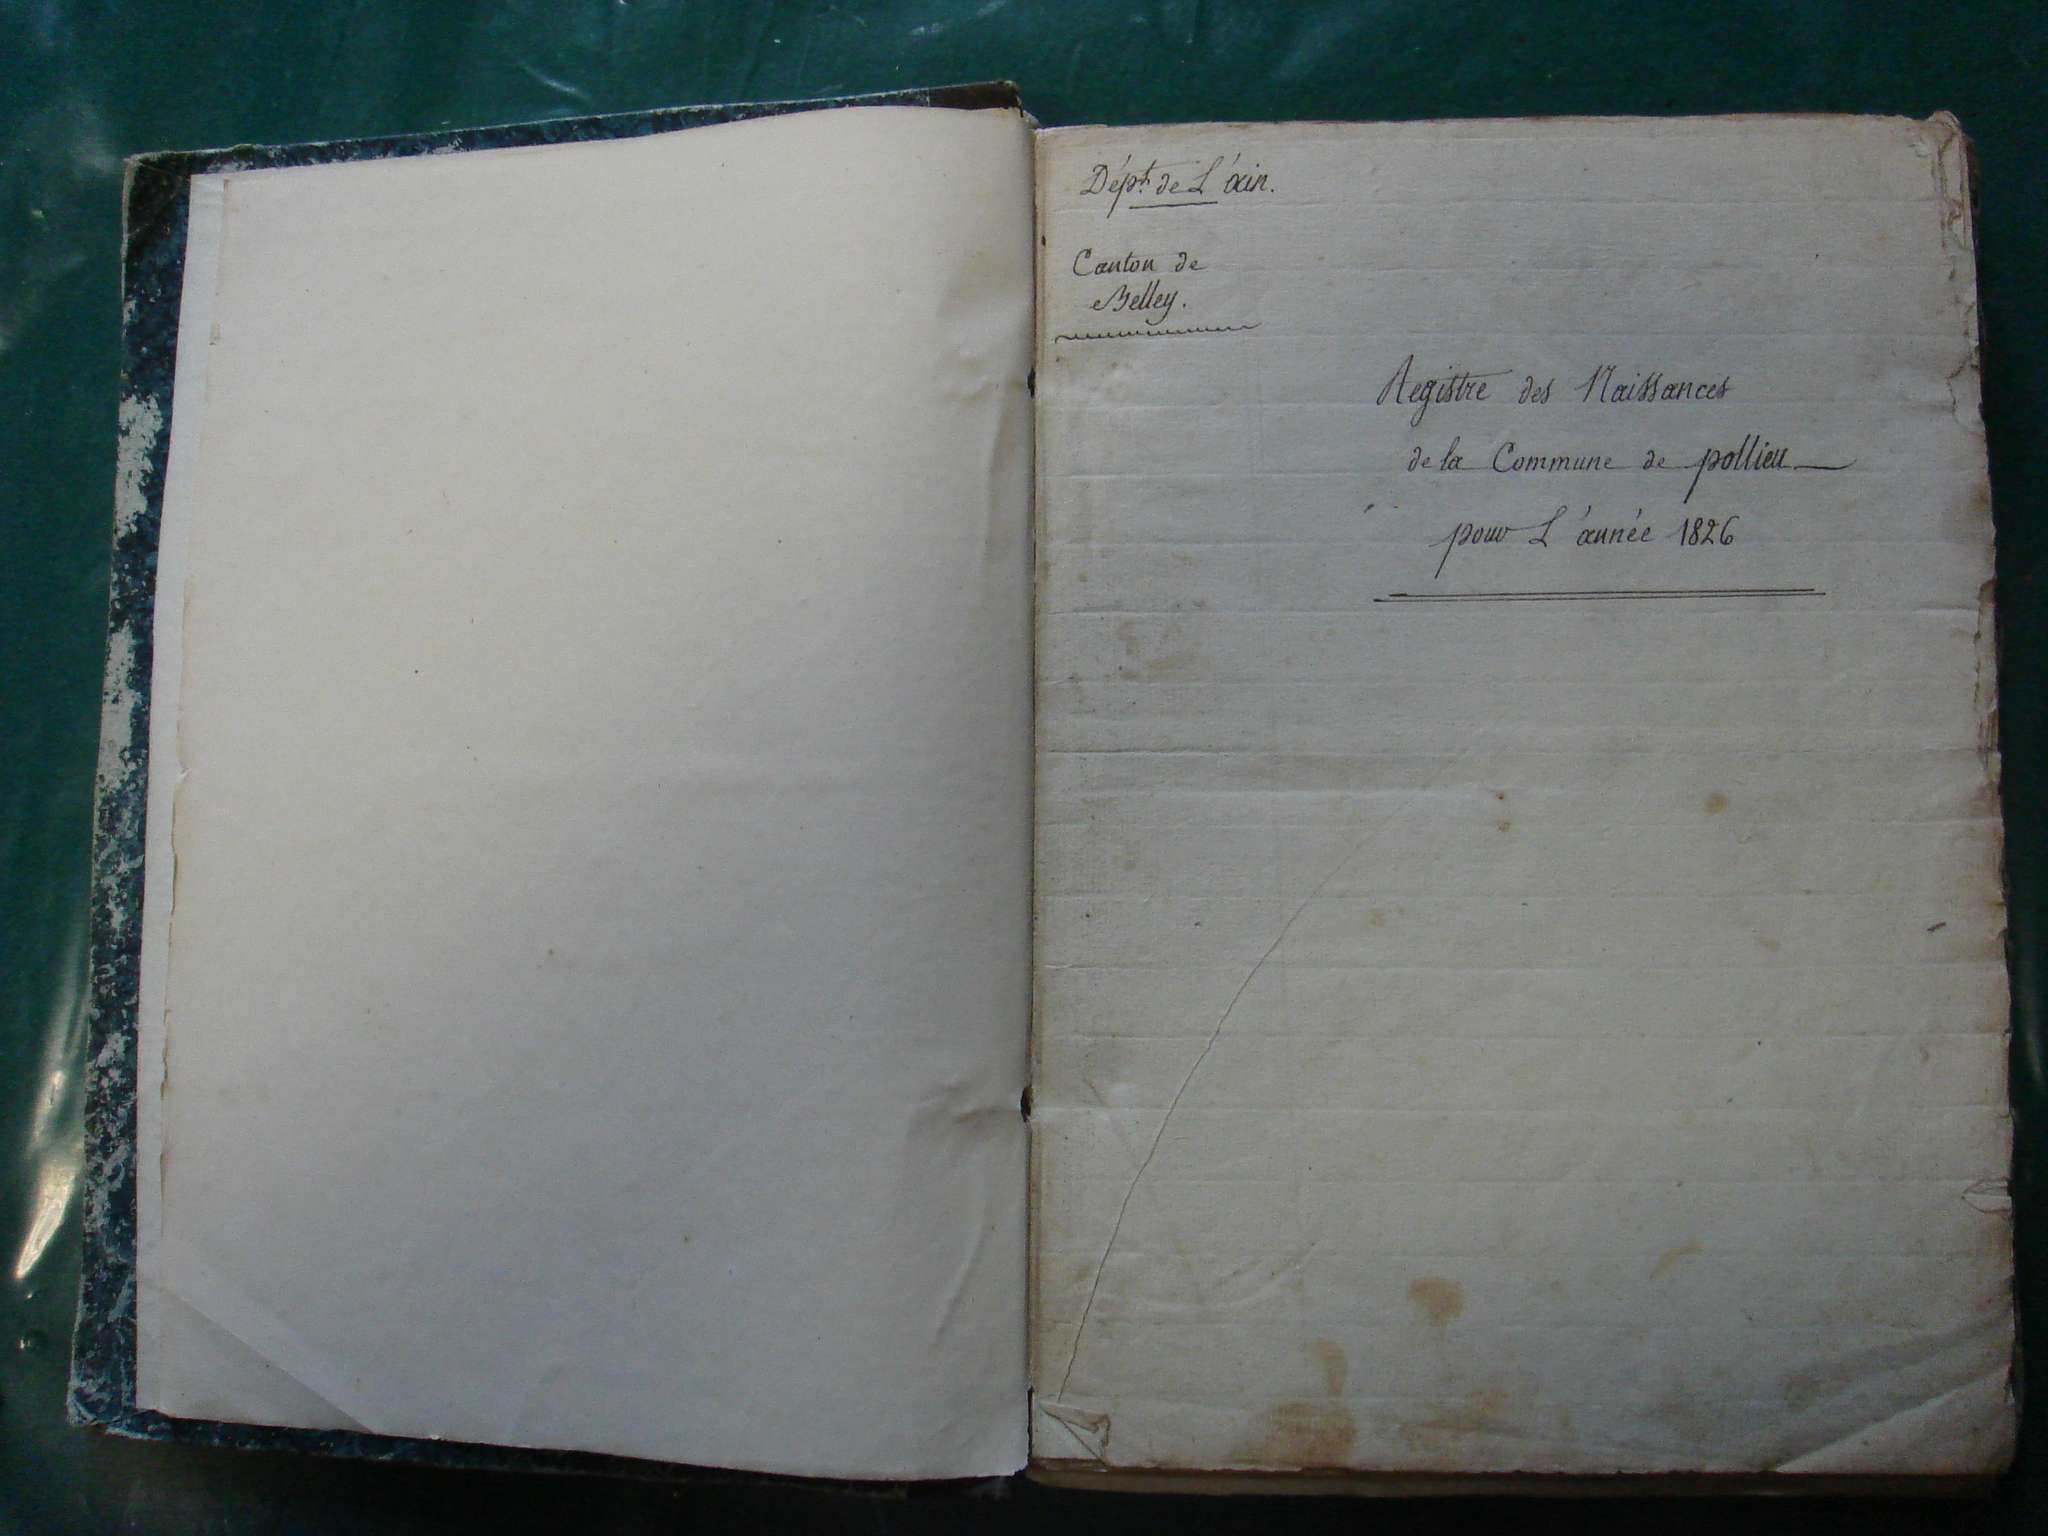 Dépt. de L'ain.
Canton de
Belley.
Registre des Naissances
de la Commune de pollieu
pour L'année 1826